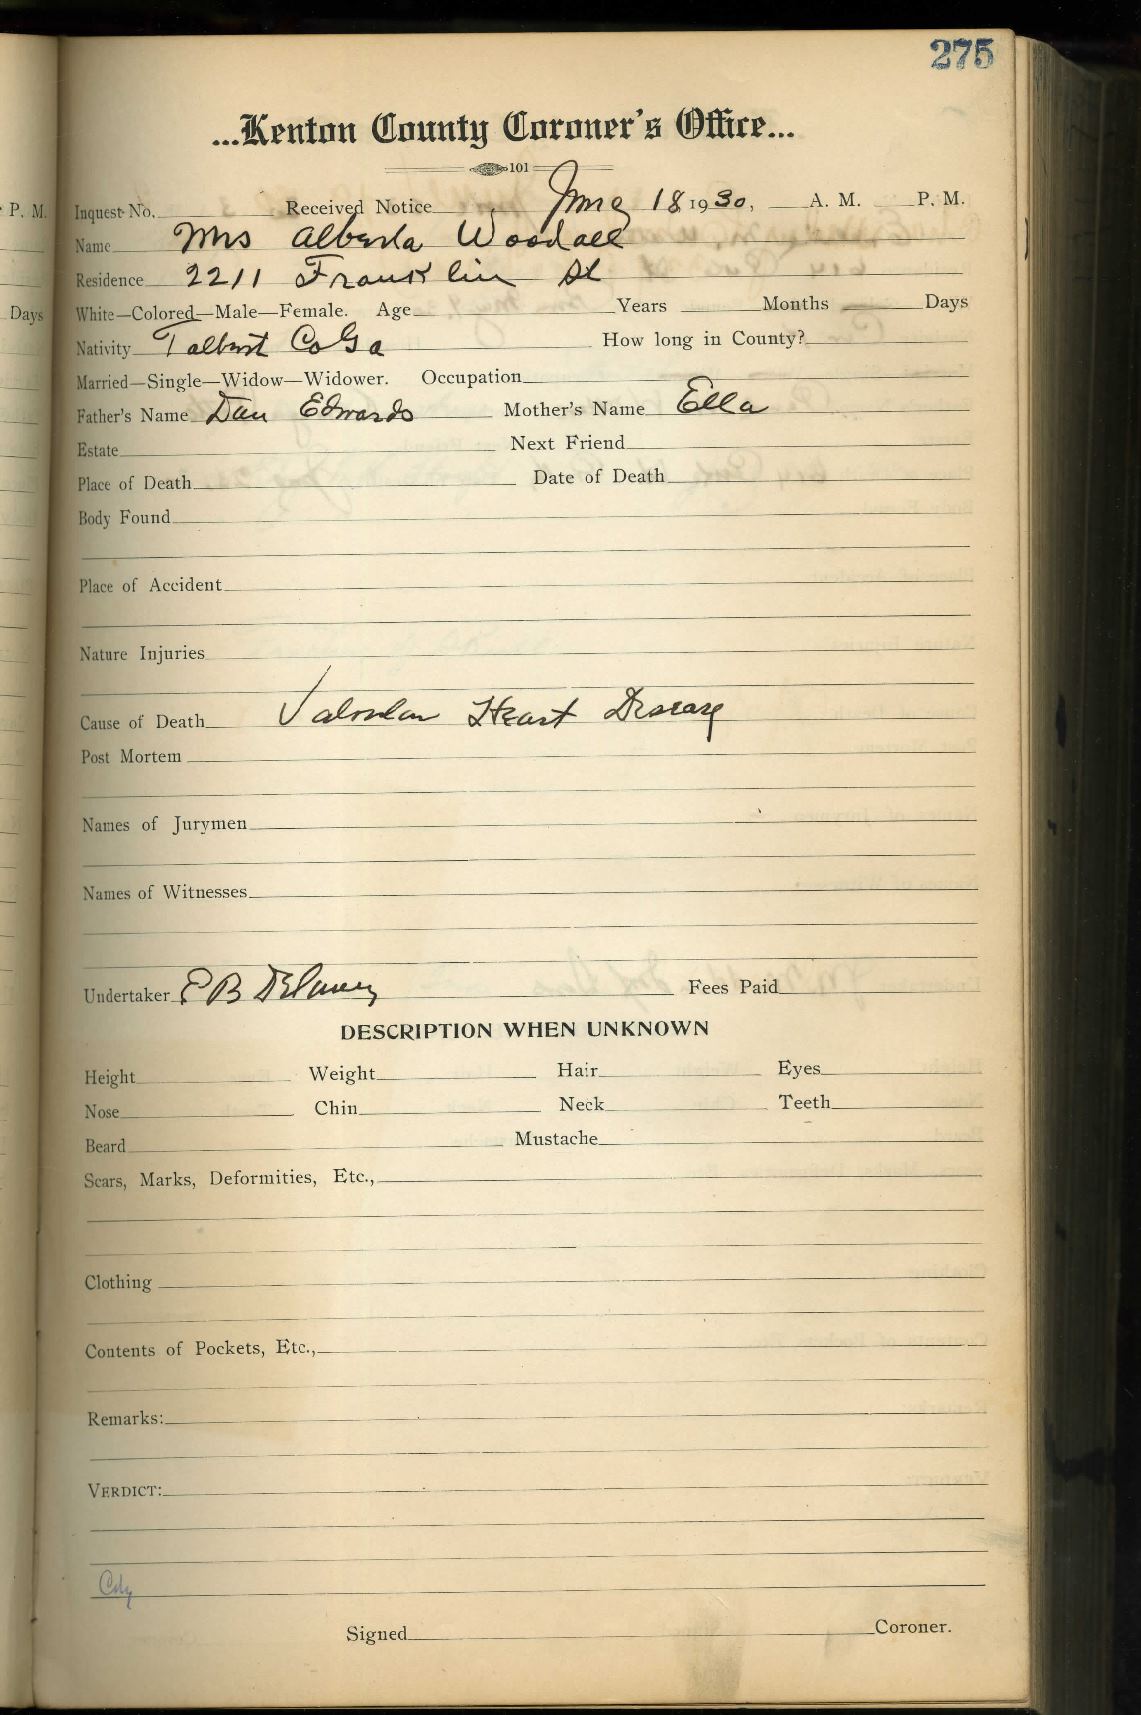 275
...Kenton County Coroner's Office...
101
P. M. Inquest No. Received Notice 18 1930, A. M. P. M.
Name Mrs Alberta Woodall
Residence 2211 Franklin St
Days White—Colored—Male—Female. Age Years Months Days
Nativity Talbert Co Ga How long in County?
Married—Single—Widow—Widower. Occupation
Father's Name Dan Edwards Mother's Name Ella
Estate Next Friend
Place of Death Date of Death
Body Found
Place of Accident
Nature Injuries
Cause of Death Valvular Heart Disease
Post Mortem
Names of Jurymen
Names of Witnesses
Undertaker E B Delaney Fees Paid
DESCRIPTION WHEN UNKNOWN
Height Weight Hair Eyes
Nose Chin Neck Teeth
Beard Mustache
Scars, Marks, Deformities, Etc.,
Clothing
Contents of Pockets, Etc.,
Remarks:
VERDICT:
Signed Coroner.